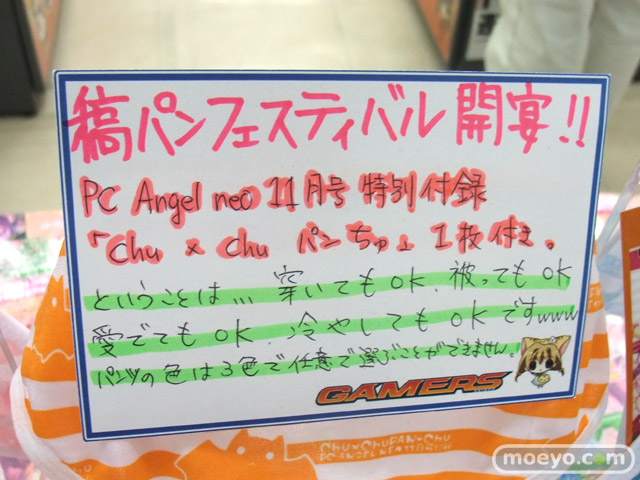 縞パンフェスティバル 開宴!!
PC Angel neo 11月号 特別付録
「chu × chu パンちゅ」1枚付き。
ということは… 穿いてもOK、被ってもOK
愛でてもOK 冷やしてもOKですwww
パンツの色は3色で任意で選ぶことができません。!
GAMERS
CHU×CHU PAN×CHU
PC ANGEL NEO
moeyo.com